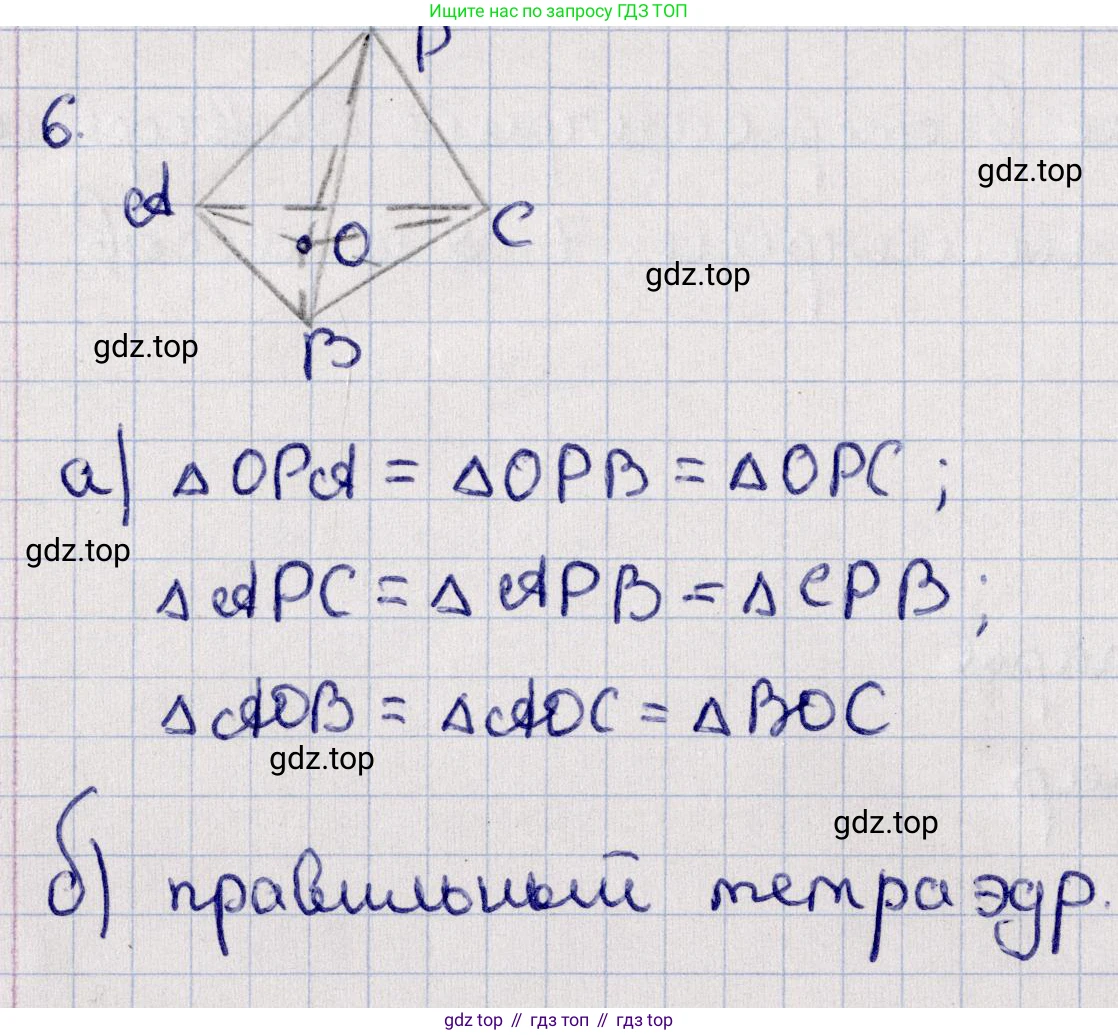 Ищите нас по запросу ГДЗ ТОП
P
6.
gdz.top
A
C
O
gdz.top
B
gdz.top
а) △OPA = △OPB = △OPC;
gdz.top
△APC = △APB = △CPB;
△AOB = △AOC = △BOC
gdz.top
gdz.top
б) правильный тетраэдр.
gdz top // гдз топ // гдз top